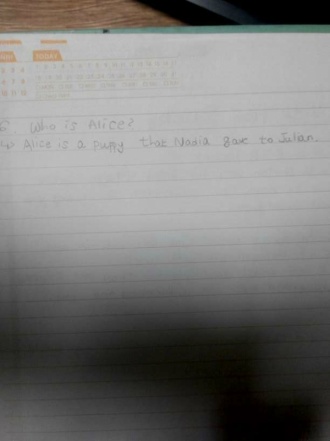 TODAY
6. Who is Alice?
↳ Alice is a puppy that Nadia gave to Julian.